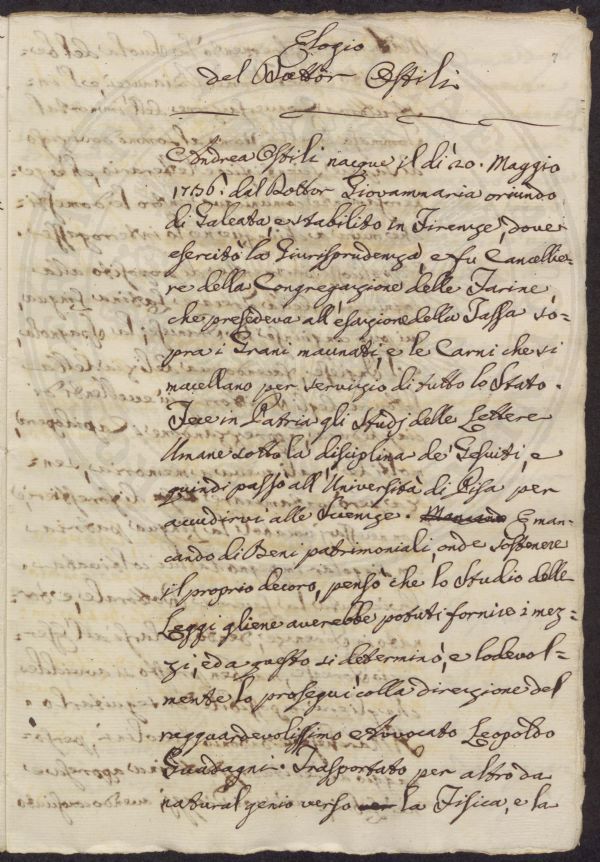 Elogio
del Dottor Ostili
7
Andrea Ostili nacque il dì 20. Maggio
1736. dal Dottor Giovanmaria oriundo
di Galeata, e stabilito in Firenze, dove
esercitò la Giurisprudenza, e fu Cancellie-
re della Congregazione delle Farine,
che presedeva all'esazione della Tassa so-
pra i Grani macinati, e le Carni che si
macellano per servizio di tutto lo Stato.
Fece in Patria gli Studj delle Lettere
Umane sotto la disciplina de' Gesuiti, e
quindi passò all'Università di Pisa per
accudirvi alle Scienze. Mancando E man-
cando di Beni patrimoniali, onde sostenere
il proprio decoro, pensò che lo Studio delle
Leggi gliene averebbe potuti fornire i mez-
zi, e da questo si determinò, e lodevol-
mente lo proseguì colla direzione del
ragguardevolissimo Avvocato Leopoldo
Guadagni. Trasportato per altro da
natural genio verso la Fisica, e la